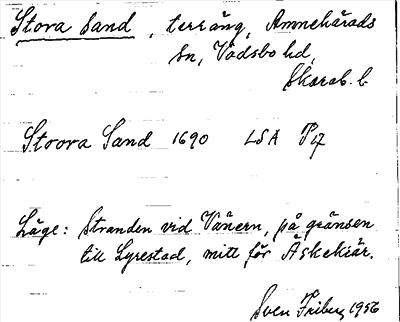 Stora Sand, terräng, Amnehärads
sn, Vadsbo hd,
Skarab. l.
Stoora Sand 1690 LSA P17
Läge: Stranden vid Vänern, på gränsen
till Lyrestad, mitt för Äskekärr.
Sven Friberg 1956